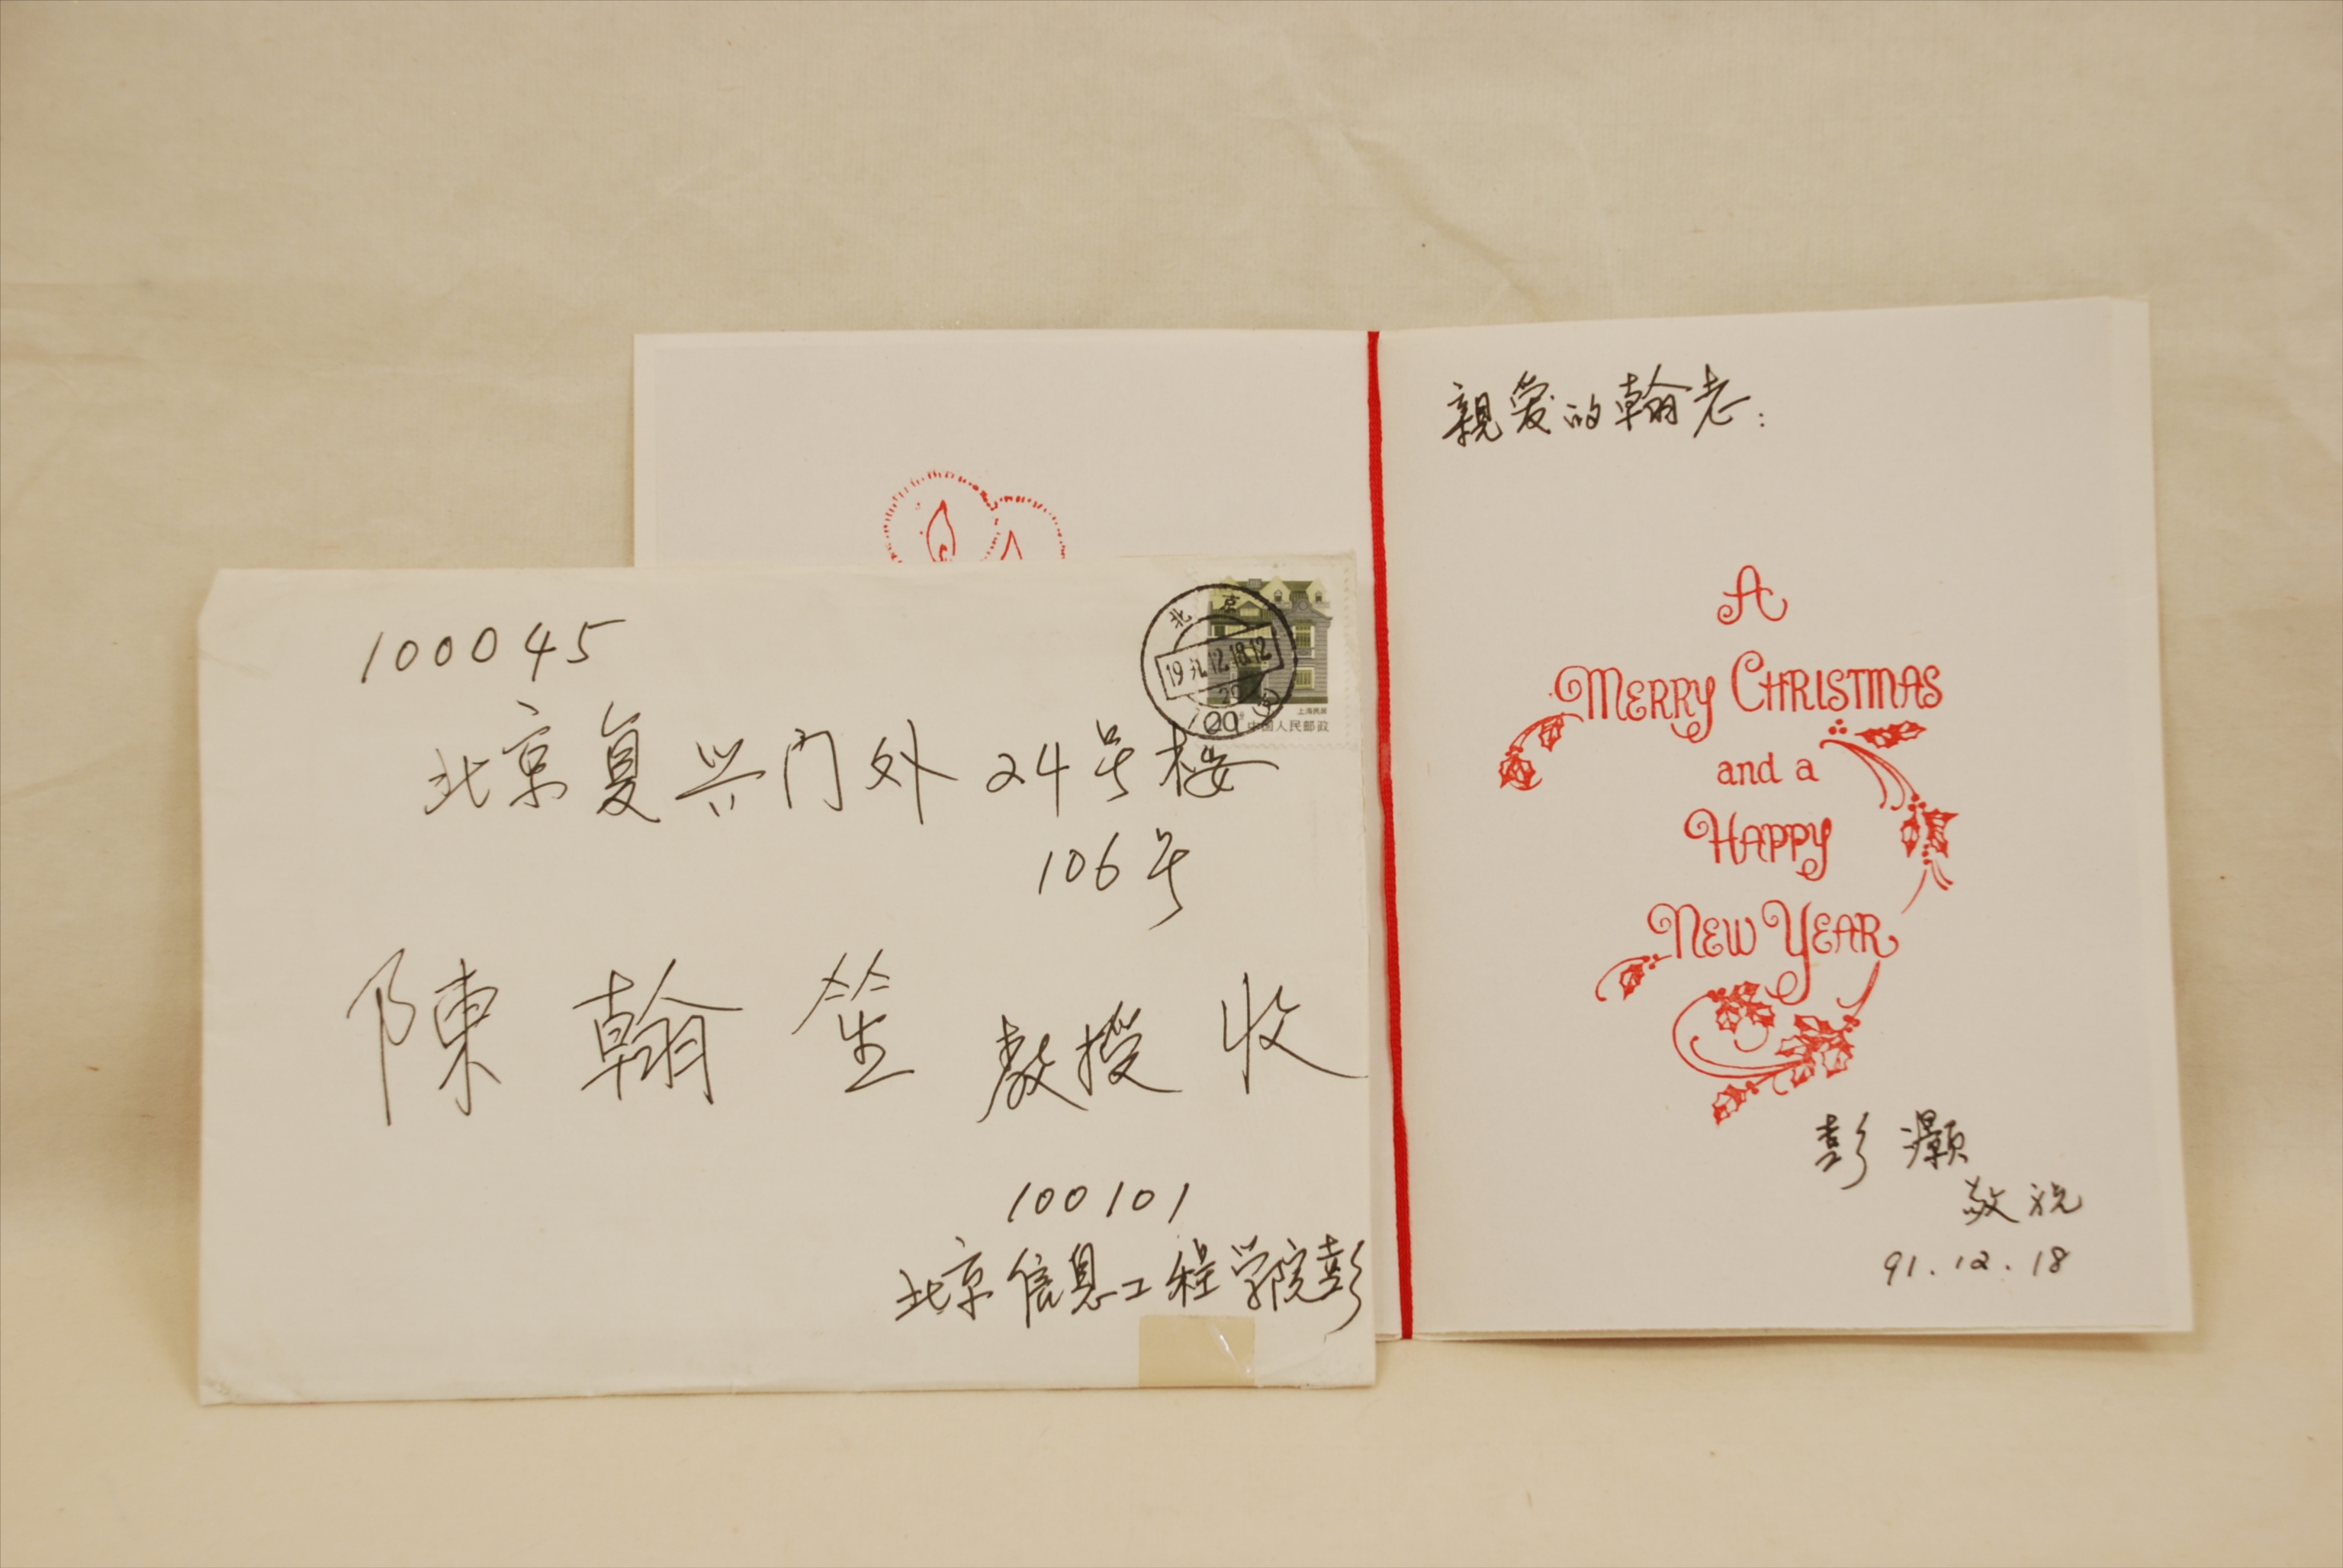 100045
北京复兴门外24号楼
106号
陳翰笙 教授 收
100101
北京信息工程学院彭
北京
19 91.12.18.12
20分 中国人民邮政
上海民居
親爱的翰老:
A
MERRY CHRISTMAS
and a
HAPPY
NEW YEAR
彭灏
敬祝
91.12.18